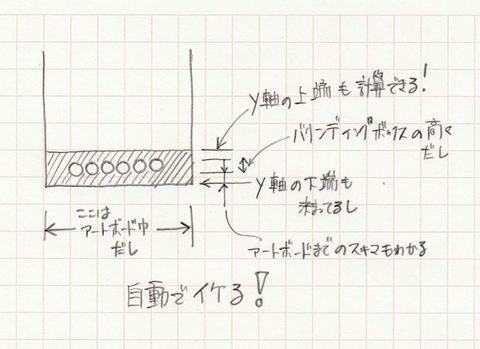 Y軸の上端も計算できる!
バウンディングボックスの高さ
だし
Y軸の下端も
決まってるし
ここは
アートボード巾
だし
アートボードまでのスキマもわかる
自動でイケる!